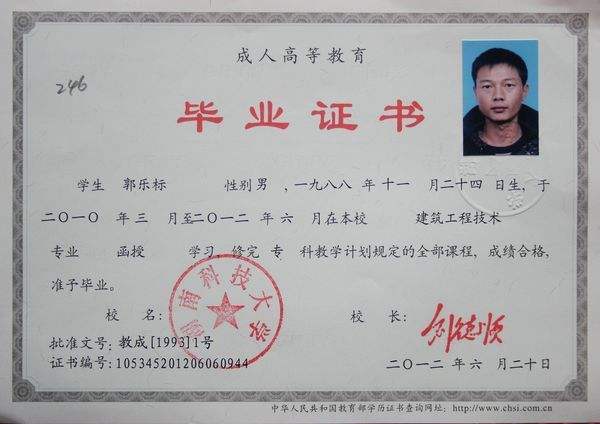 成人高等教育
246
毕业证书
学生 郭乐标 性别 男 ,一九八八 年 十一 月 二十四 日生, 于
二〇一〇 年 三 月至 二〇一二 年 六 月在本校 建筑工程技术
专业 函授 学习, 修完 专 科教学计划规定的全部课程, 成绩合格,
准予毕业。
校 名: 湖南科技大学
校 长:
批准文号: 教成[1993]1号
证书编号: 105345201206060944
二〇一二 年 六 月二十日
中华人民共和国教育部学历证书查询网址: http://www.chsi.com.cn